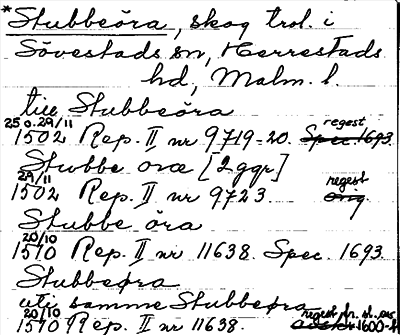 *Stubbeöra, skog trol. i
Sövestads sn, Herrestads
hd, Malm. l.
till Stubbeöra
25 o. 29/11 1502 Rep. II nr 9719-20. Spec. 1693. regest
Stubbe oræ [2 ggr]
29/11 1502 Rep. II nr 9723. Orig regest
Stubbe öra
20/10 1510 Rep. II nr 11638. Spec. 1693
Stubbeøra
uti samme Stubbeøra
20/10 1510 Rep. II nr 11638. regest 1600-t.